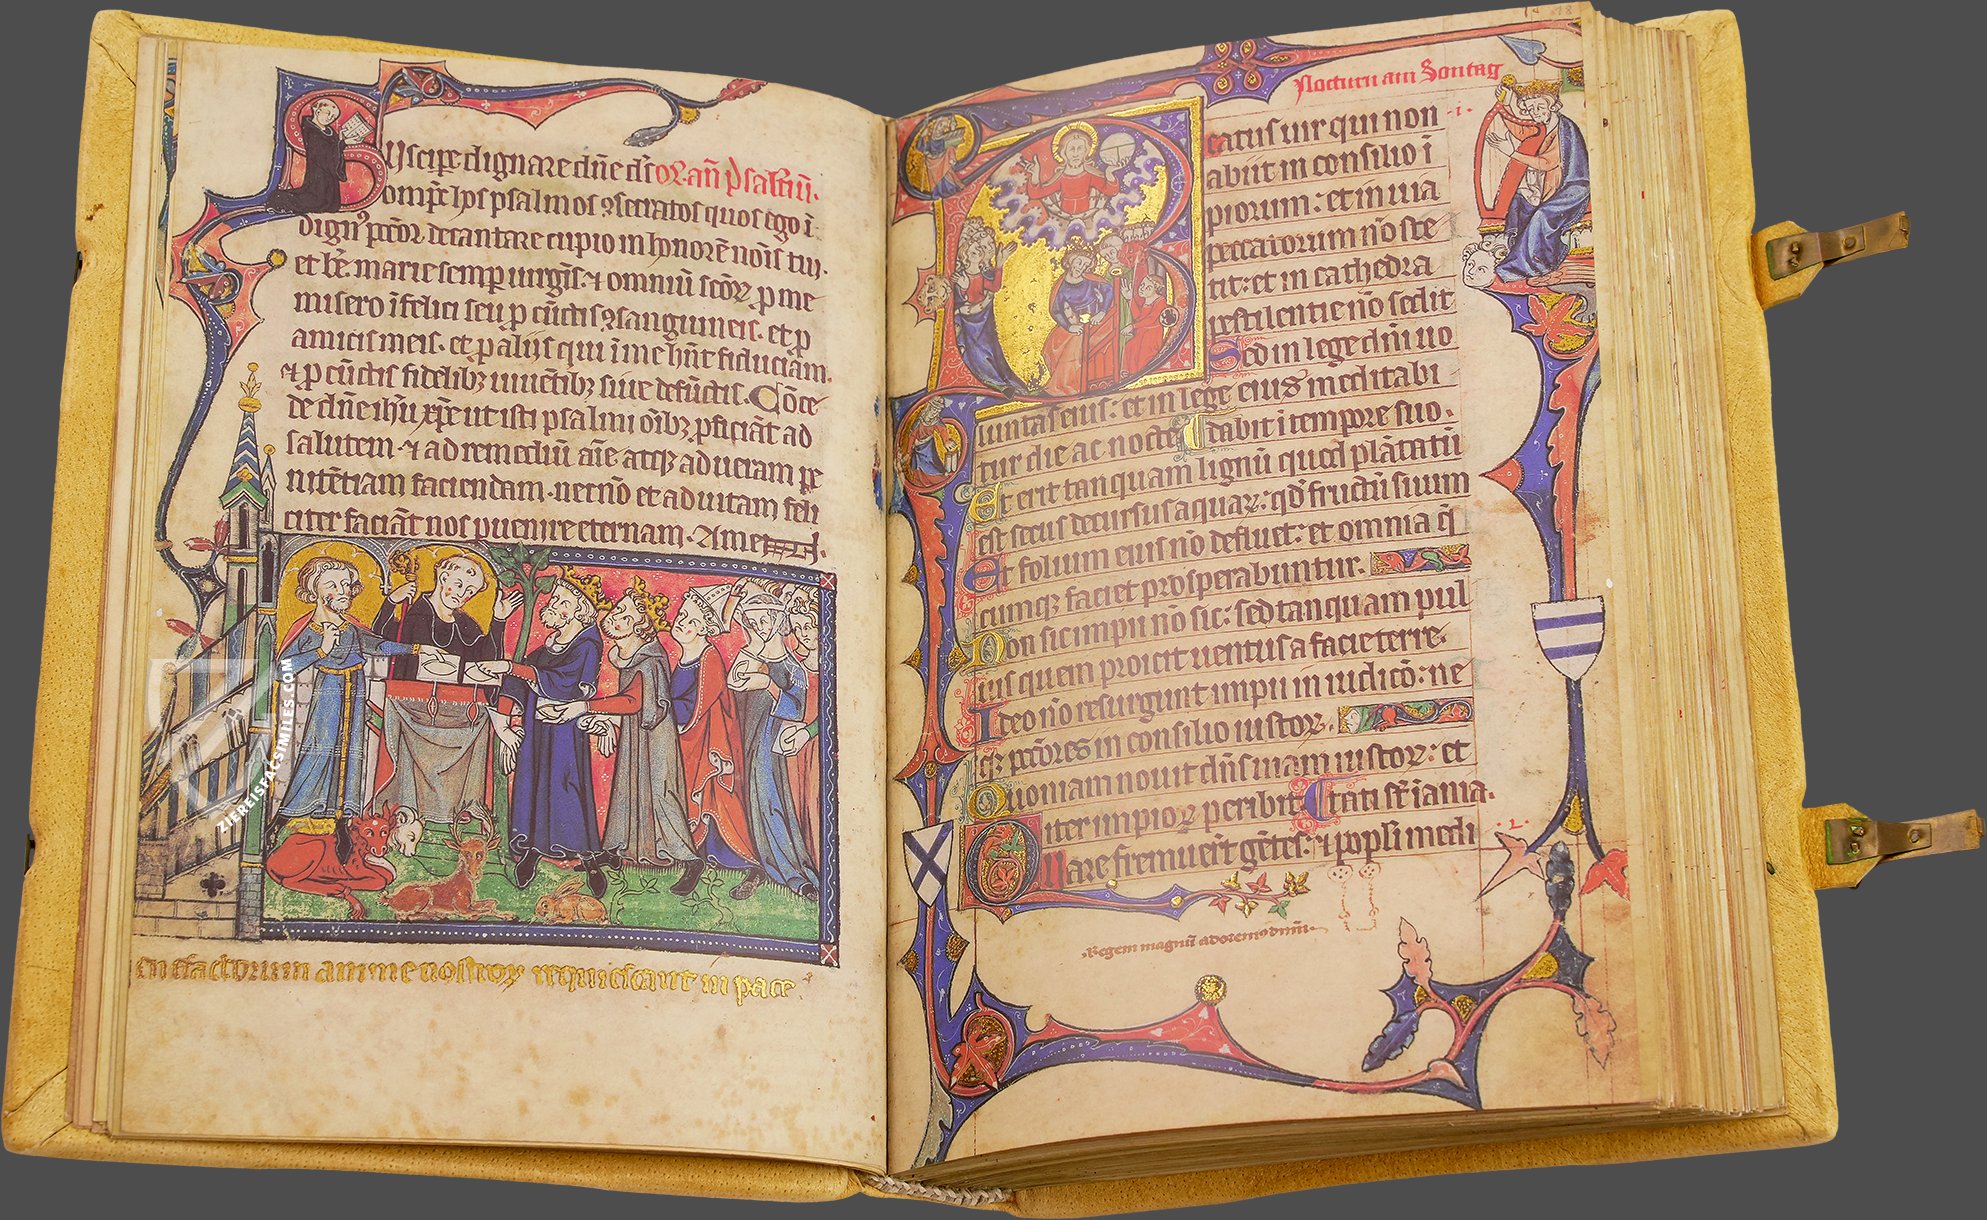 Suscipe dignare dñe ds̃ orañ psalm̃.
ompc̃ hos psalmos ꝯsecratos quos ego ĩ
dignꝰ pccõr decantare cupio in honorẽ nõis tui.
et be᷑. marie semp uirgĩs. ⁊ omniũ scõꝝ. p me
misero ĩfelici seu p cũctis ꝯsanguineis. et p
amicis meis. et p alijs qui ĩ me hñt fiduciam.
⁊ p cũctis fidelibꝫ uiuẽtibꝫ siue defũctis. Cõce
de dñe ihũ xp̃e ut isti psalmi oĩbꝫ pficiãt ad
salutem. ⁊ ad remediũ aĩe atqꝫ ad ueram pe
nitẽtiam faciendam. necnõ et ad uitam feli
citer faciãt nos puenire eternam. Amen.
anime nostroꝝ requiescant in pace
Nocturn am Sontag
Beatus uir qui non .i.
abiit in consilio ĩ
piorum: et in uia
peccatorum nõ ste
tit: et in cathedra
pestilentie nõ sedit
Sed in lege dñi uo
luntas eius: et in lege eius meditabi
tur die ac nocte. dabit ĩ tempore suo.
Et erit tanquam lignũ quod plãtatũ
est secus decursus aquaꝝ: qd̃ fructũ suum
Et folium eius nõ defluet: et omnia q̃
cumqꝫ faciet prosperabuntur.
Non sic impii nõ sic: sed tanquam pul
uis quem proicit uentus a facie terre.
Ideo nõ resurgunt impii in iudicõ: ne
qꝫ pccõres in consilio iustoꝝ.
Quoniam nouit dñs uiam iustoꝝ: et
iter impioꝝ peribit.
Quare fremuerũt gẽtes: ⁊ popli medi .2.
Regem magnũ adoremꝰ dñm.
ZIEREISFACSIMILES.COM